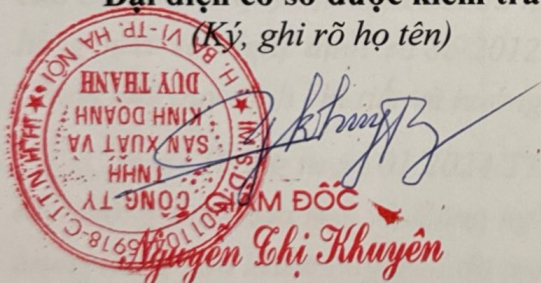 Đại diện cơ sở được kiểm tra
(Ký, ghi rõ họ tên)
CÔNG TY
TNHH
SẢN XUẤT VÀ
KINH DOANH
DUY THÀNH
H. BA VÌ-TP. HÀ NỘI
M.S.D.N
C.T.T.N.H.H
GIÁM ĐỐC
Nguyễn Thị Khuyên